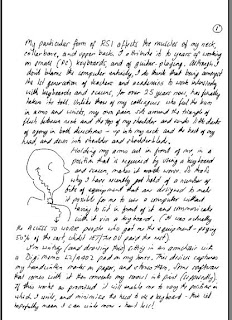 ①
My particular form of RSI affects the muscles of my neck,
collar bone, and upper back. I attribute it to years of working
on small (PC) keyboards, and of guitar-playing. Although I
don't blame the computer entirely, I do think that being amongst
the 1st generation of teachers and academics to work intensively
with keyboards and screens, for over 25 years now, has finally
taken its toll. Unlike those of my colleagues who feel the burn
in arms and wrists, my own pain sits around the triangle of
flesh between neck and the top of my shoulder and sends
of agony in both directions – up into my neck and the back of my
head, and down into shoulder and shoulder blade.
Holding my arms out in front of me, in a
position that is required by using a keyboard
and screen, makes it much worse. So that's
why I have recently got hold of a number of
bits of equipment that are designed to make
it possible for me to use a computer without
having to sit in front of it and communicate
with it via a keyboard. (It was actually
the ACCESS TO WORK people who got me the equipment – paying
50% of the cost whilst paid the rest).
I'm writing (and drawing this) sitting in an armchair with
a Digimemo L2/A402 pad on my knee. This device captures
my handwritten marks on paper, and stores them. Some software
that comes with it then converts my scrawl into print (supposedly).
If this works as promised it will enable me to vary the position in
which I write, and minimize the need to use a keyboard. And
hopefully mean I can write more + hurt less!